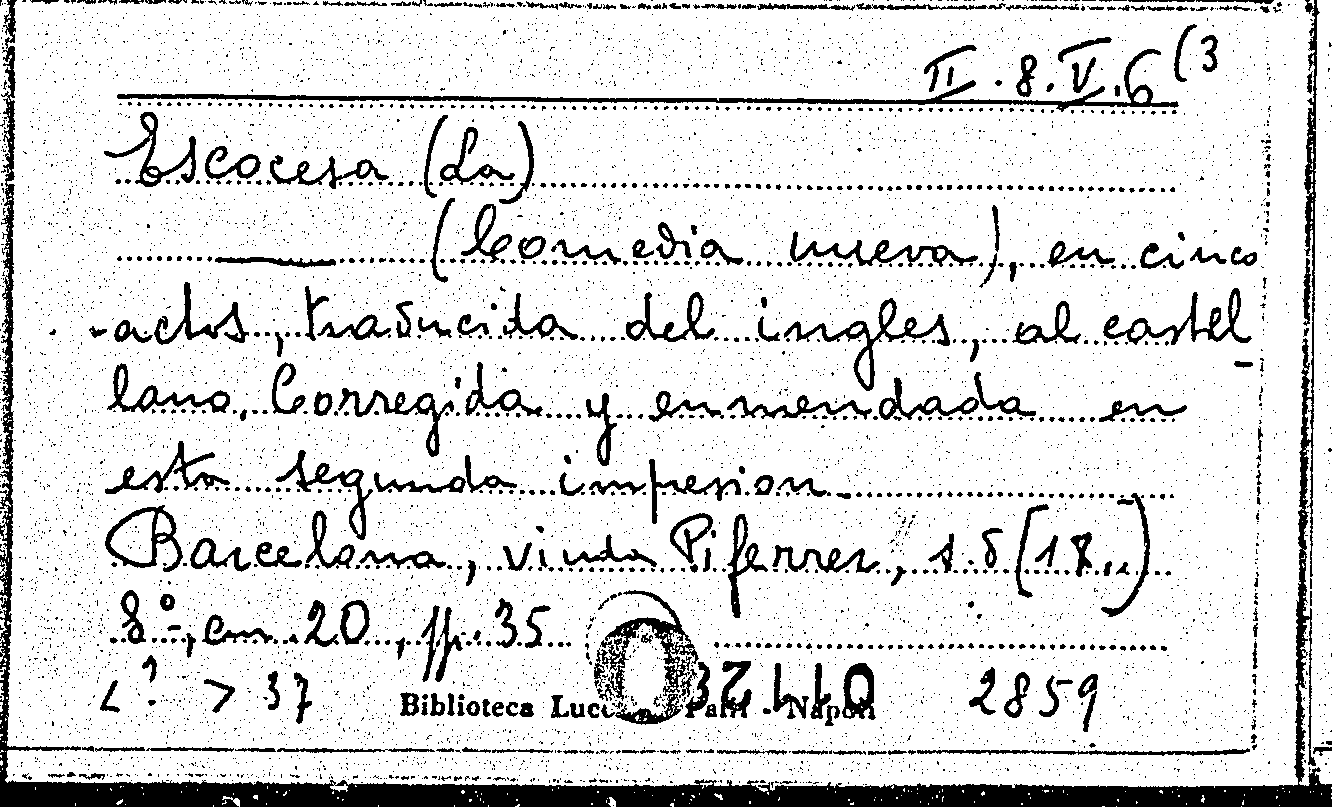 II.8.V.6(3
Escocesa (La)
(Comedia nueva), en cinco
actos, traducida del ingles, al castel
lano. Corregida y enmendada en
esta segunda impresion.
Barcelona, viuda Piferrer, s.d (18..)
8º, cm. 20, pp. 35
<?> 37
Biblioteca Napoli
011123
2859